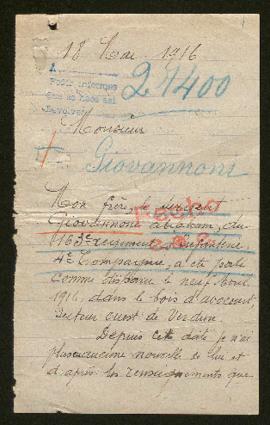 18 Mai 1916
21400
Monsieur
Giovannoni
Mon frère, le sergent
Giovannoni abraham, du
163e régiment infanterie,
4e Compagnie, a été porté
comme disparu le neuf Avril
1916, dans le bois d'avocourt
Secteur ouest de Verdun.
Depuis cette date je n'ai
plus aucune nouvelle de lui et
d'après les renseignements que